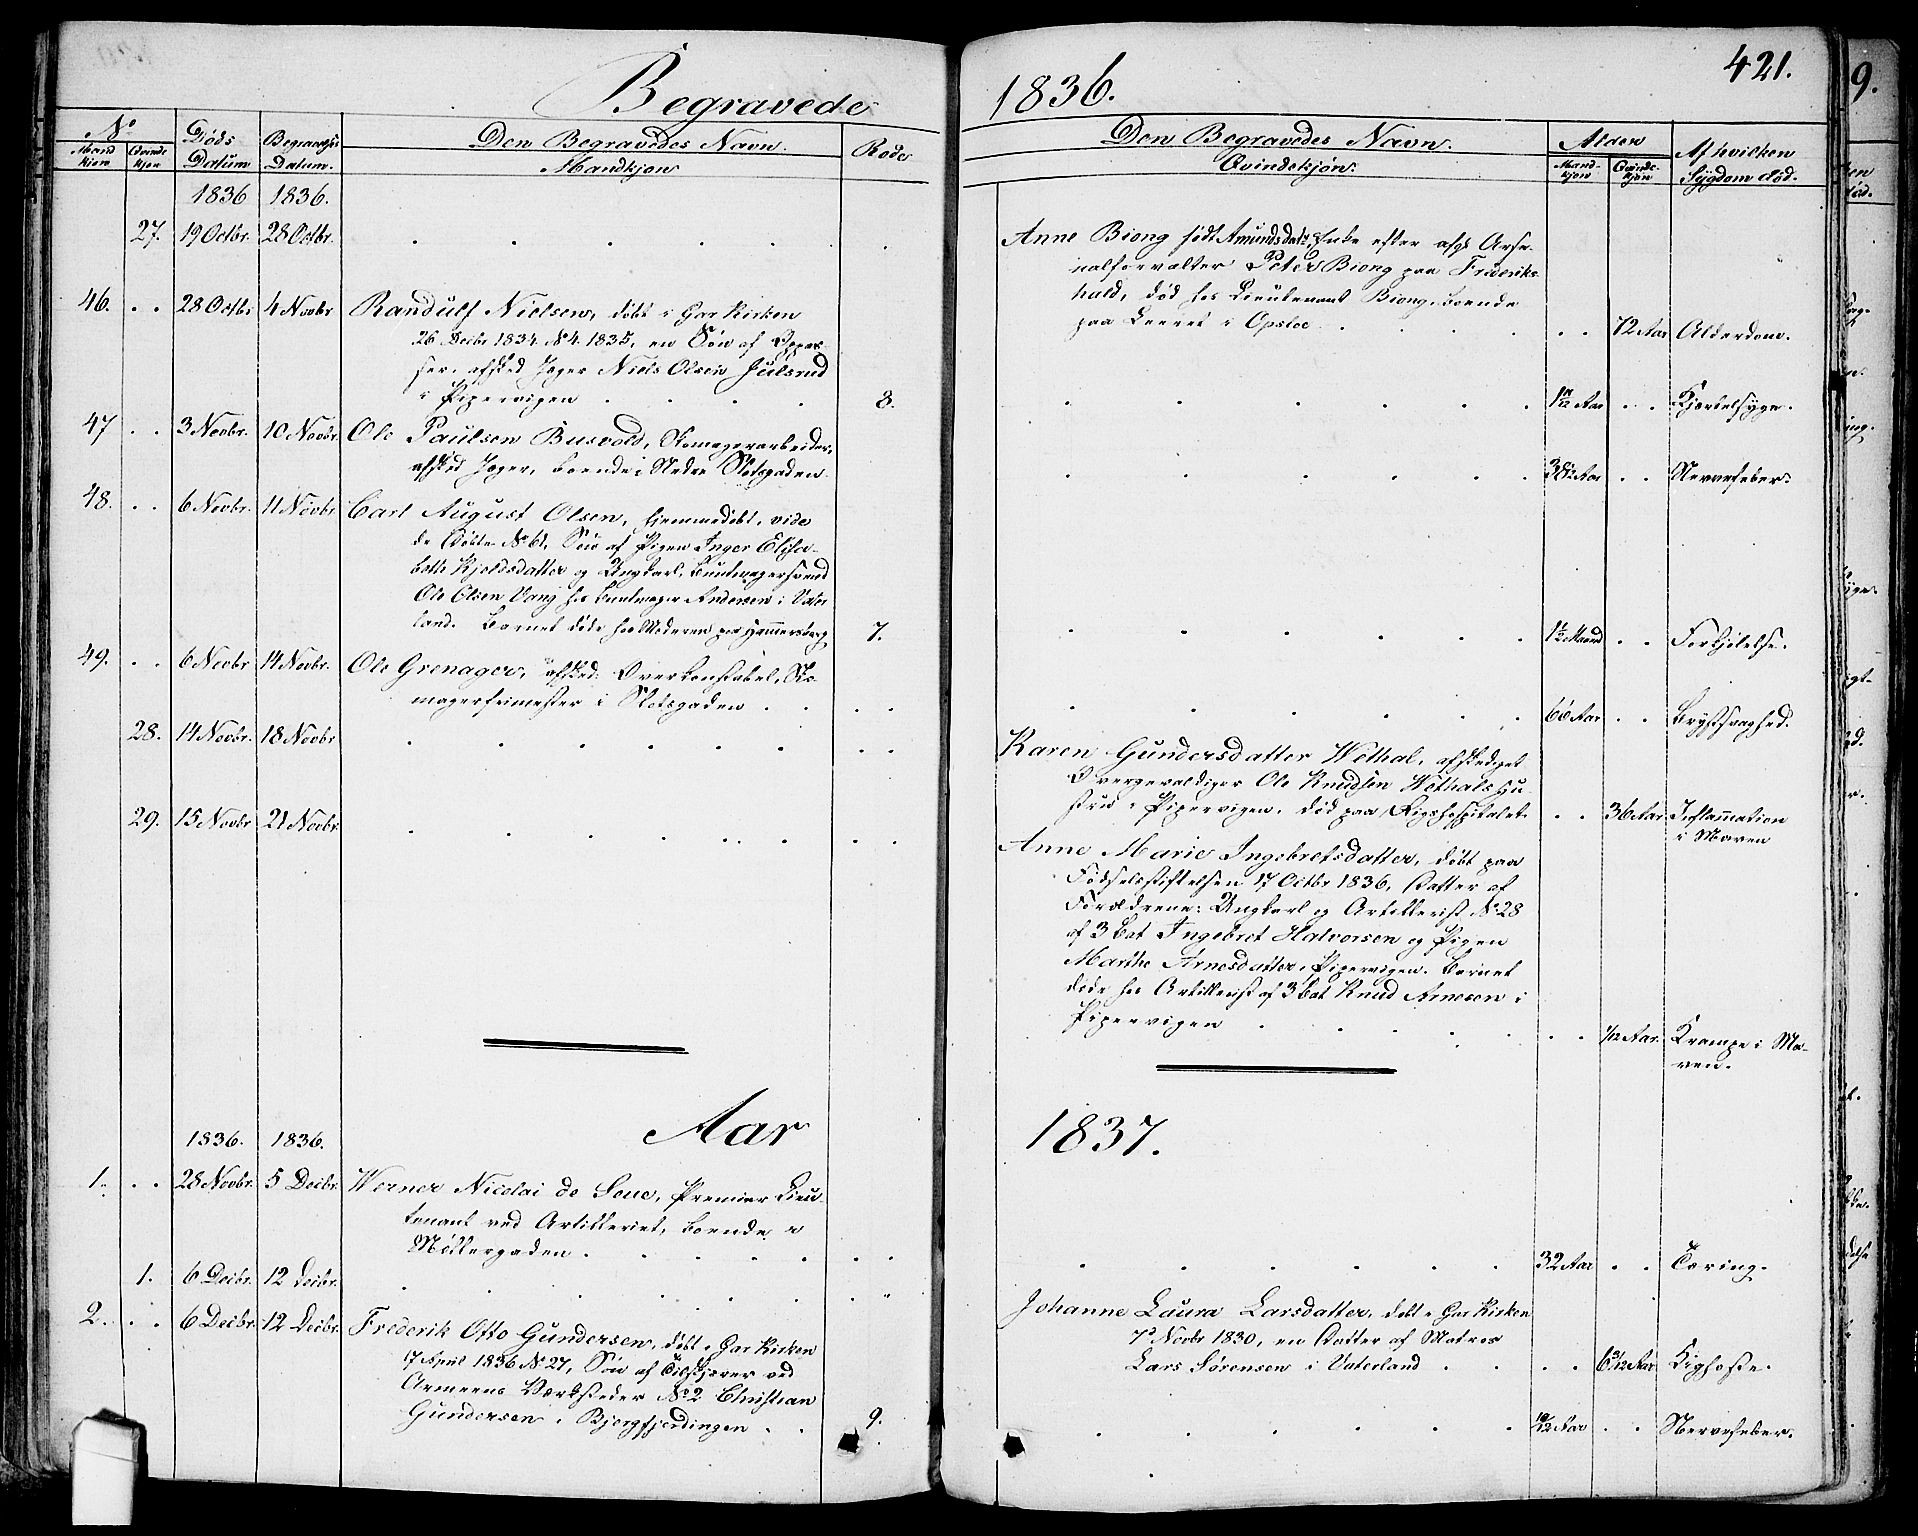 Begravede
1836.
421.
9.
No
Mand kjøn
Qvinde kjøn
Døds Datum
Begravelses Datum.
Den Begravedes Navn.
Mandkjøn
Rode
Den Begravedes Navn.
Qvindekjøn.
Alder
Mand-kjøn
Qvinde-kjøn
Af hvilken
Sygdom død.
1836 1836.
27. 19 Octbr. 28 Octbr.
Anne Biong født Amundsdatr, Enke efter afgl. Arse-
nalforvalter Peter Biong paa Frederiks-
hald, død hos Lieutenant Biong, boende
paa Leeret i Opsloe
72 Aar Alderdom.
46. 28 Octbr 4 Novbr Randulf Nielsen, døbt i Gar Kirken
26 Decbr 1834 No 4 1835, en Søn af
afsked Jæger Niels Olsen Julsrud
i Pipervigen 8.
Aar Kjertelsyge.
47 3 Novbr. 10 Novbr. Ole Paulsen Busvold, Skomagerarbeider,
afsked Jæger, boende i Nedre Slotsgaden
Aar Nervefeber.
48. 6 Novbr. 11 Novbr. Carl August Olsen, hjemmedøbt, vide
de Døbte No 61, Søn af Pigen Inger Elisa-
beth Kjeldsdatter og Ungkarl, Buntmagersvend
Ole Olsen Vang hos Buntmager Andersen i Vater
land. Barnet døde hos Moderen paa Hammersborg 7.
1 1/2 Maaned Forkjølelse.
49. 6 Novbr 14 Novbr. Ole Grenager, afsked. Overkonstabel, Sko-
magerfrimester i Slotsgaden
60 Aar Brystsvaghed.
28. 14 Novbr. 18 Novbr
Karen Gundersdatter Wethal, afskediget
Overgevaldiger Ole Knudsen Wethals Hu-
stru i Pipervigen, død paa Rigshospitalet
36 Aar Inflammation
i Maven
29. 15 Novbr 21 Novbr.
Anne Marie Ingebretsdatter, døbt paa
Fødselsstiftelsen 17 Octbr 1836, Datter af
Forældrene: Ungkarl og Artillerist No 28
af 3 Bat Ingebret Halvorsen og Pigen
Marthe Arnesdatter, Pipervigen. Barnet
døde hos Artillerist af 3 Bat Knud Arnesen i
Pipervigen
1/12 Aar. Krampe i Ma-
ven.
Aar 1837.
1836. 1836.
1. 28 Novbr. 5 Decbr. Werner Nicolai de Seue, Premier Lieu-
tenant ved Artilleriet, boende i
Møllergaden
32 Aar Tæring.
1. 6 Decbr. 12 Decbr.
Johanne Laura Larsdatter, døbt i Gar Kirken
7de Novbr 1830, en Datter af Matros
Lars Sørensen i Vaterland
Aar Kighoste.
2. 6 Decbr. 12 Decbr. Frederik Otto Gundersen, døbt i Gar Kirken
17 April 1836 No 27, Søn af Tilskjærer ved
Armeens Værksteder No 2 Christian
Gundersen i Bjergfjerdingen 9.
10/12 Aar Nervefeber.